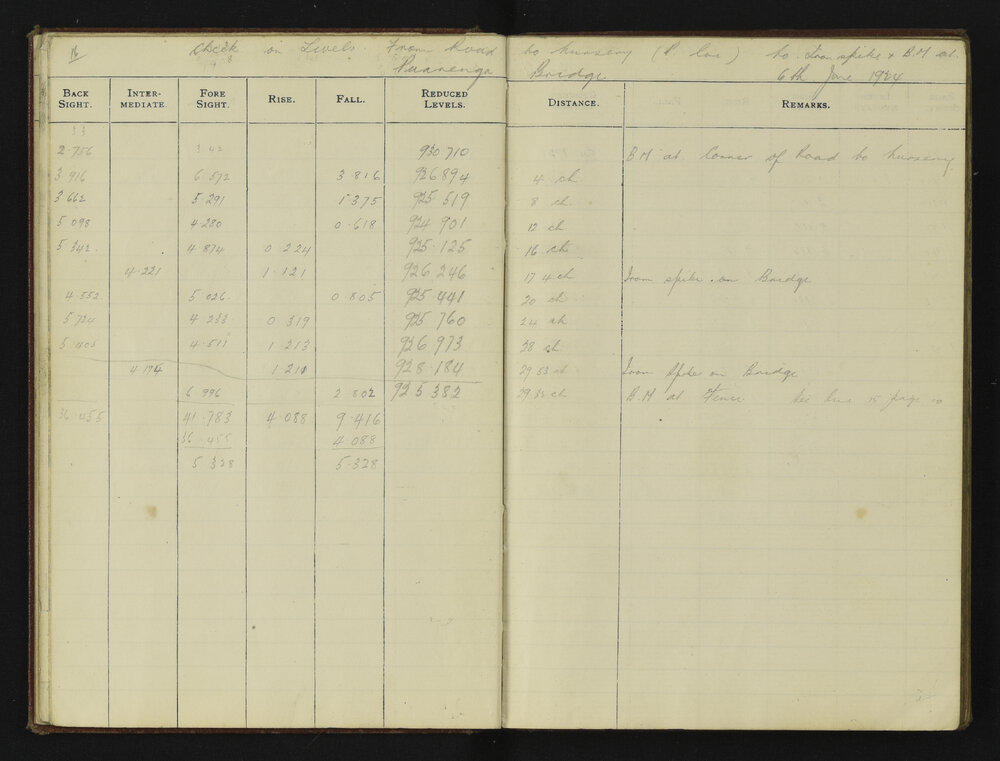 16 Check on Levels. From Road to Nursery (P line) to Iron spike & B.M at
Puarenga Bridge 6th June 1924
BACK SIGHT. INTER-MEDIATE. FORE SIGHT. RISE. FALL. REDUCED LEVELS. DISTANCE. REMARKS.
33
2.756 3 42 930 710 B M at Corner of Road to Nursery
3 916 6 572 3 816 926 894 4 ch
3 662 5 291 1 375 925 519 8 ch
5 098 4 280 0.618 924 901 12 ch
5 342. 4 874 0 224 925.125 16 ch
4.221 1.121 926 246 17 4 ch Iron spike on Bridge
4.552 5 026. 0 805 925 441 20 ch
5 724 4 233 0 319 925 760 24 ch
5.405 4.511 1 213 926 973 28 ch
4 194 1 211 928.184 29 53 ch Iron Spike on Bridge
6 996 2 802 925 382 29 ch B.M at Fence See line 15 page 10
36 455 41.783 4.088 9.416
36 455 4 088
5 328 5.328